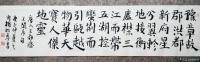 豫章故
郡洪都
新府星
分翼軫
地接衡
廬襟三
江而帶
五湖控
蠻荊而
引甌越
物華天
寶人傑
地靈